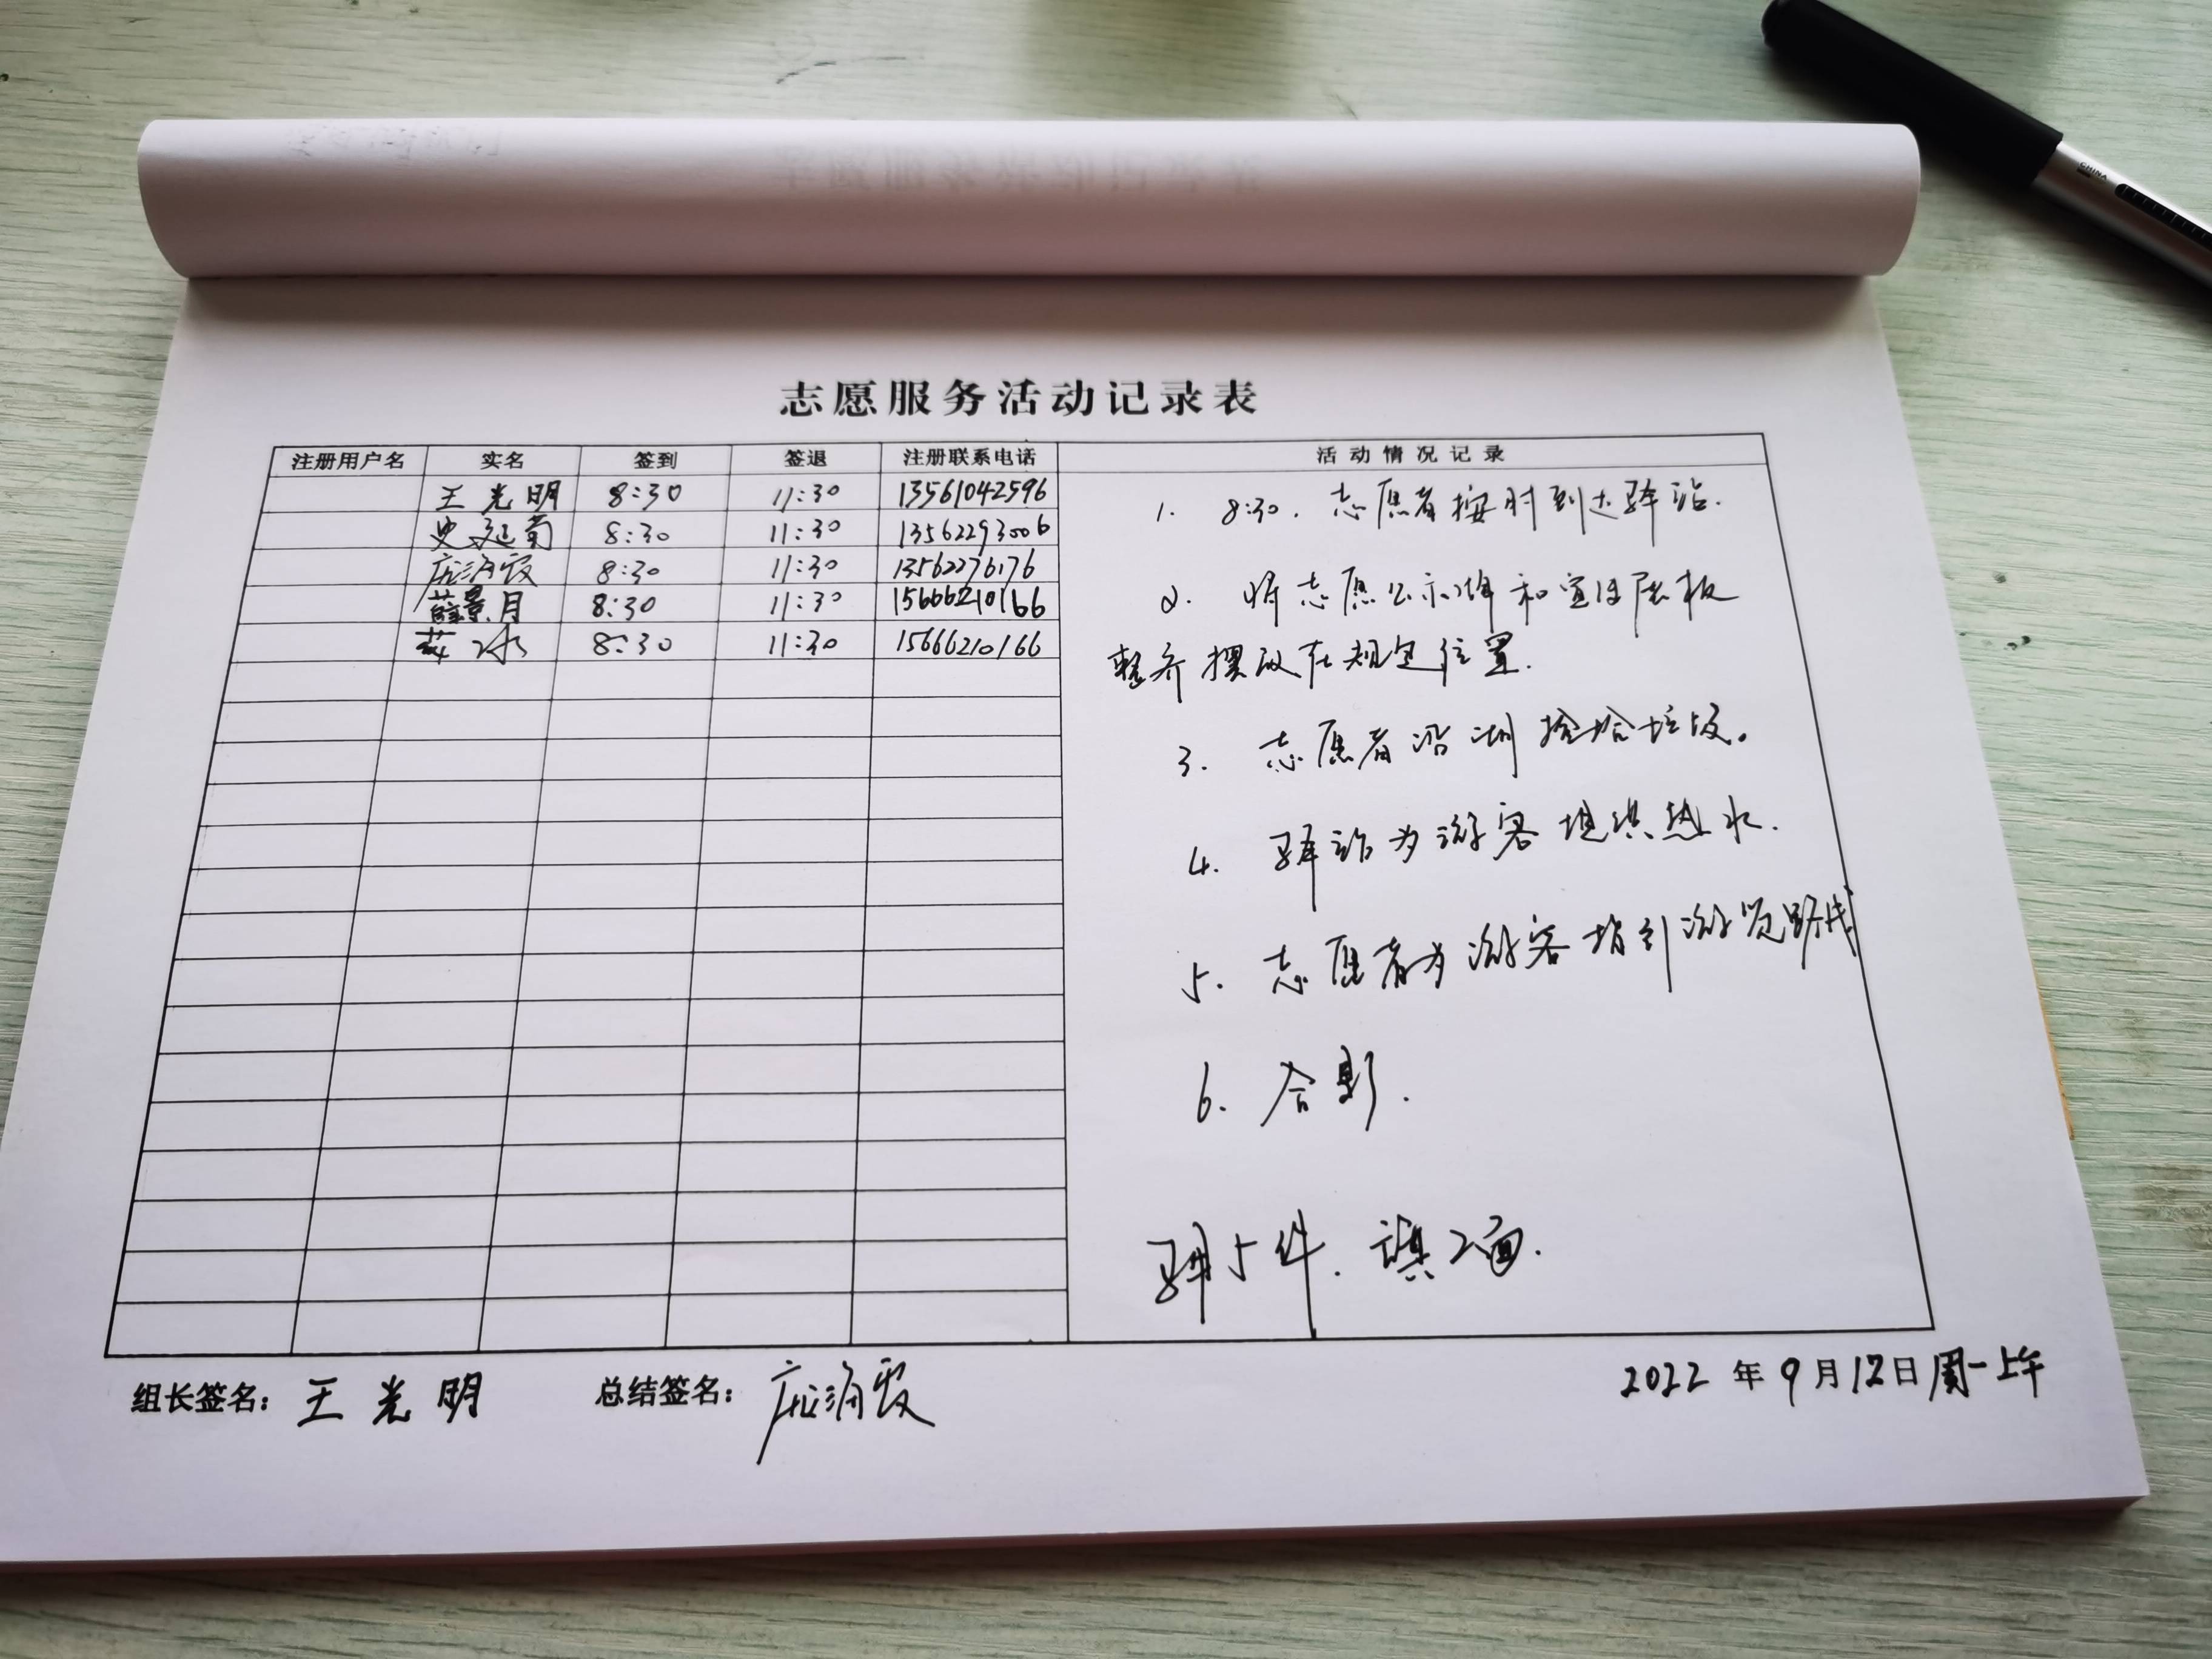 志愿服务活动记录表
注册用户名 实名 签到 签退 注册联系电话 活动情况记录
王光明 8:30 11:30 13561042596
史延菊 8:30 11:30 13562293006
庞海霞 8:30 11:30 13562276176
薛景月 8:30 11:30 15666210166
冰 8:30 11:30 15666210166
1. 8:30. 志愿者按时到达驿站.
2. 将志愿公示牌和宣传展板
整齐摆放在规定位置.
3. 志愿者沿湖捡拾垃圾。
4. 驿站为游客提供热水.
5. 志愿者为游客指引游览路线
6. 合影.
5件. 旗2面.
组长签名: 王光明 总结签名: 庞海霞 2022年9月12日周一上午
CHINA